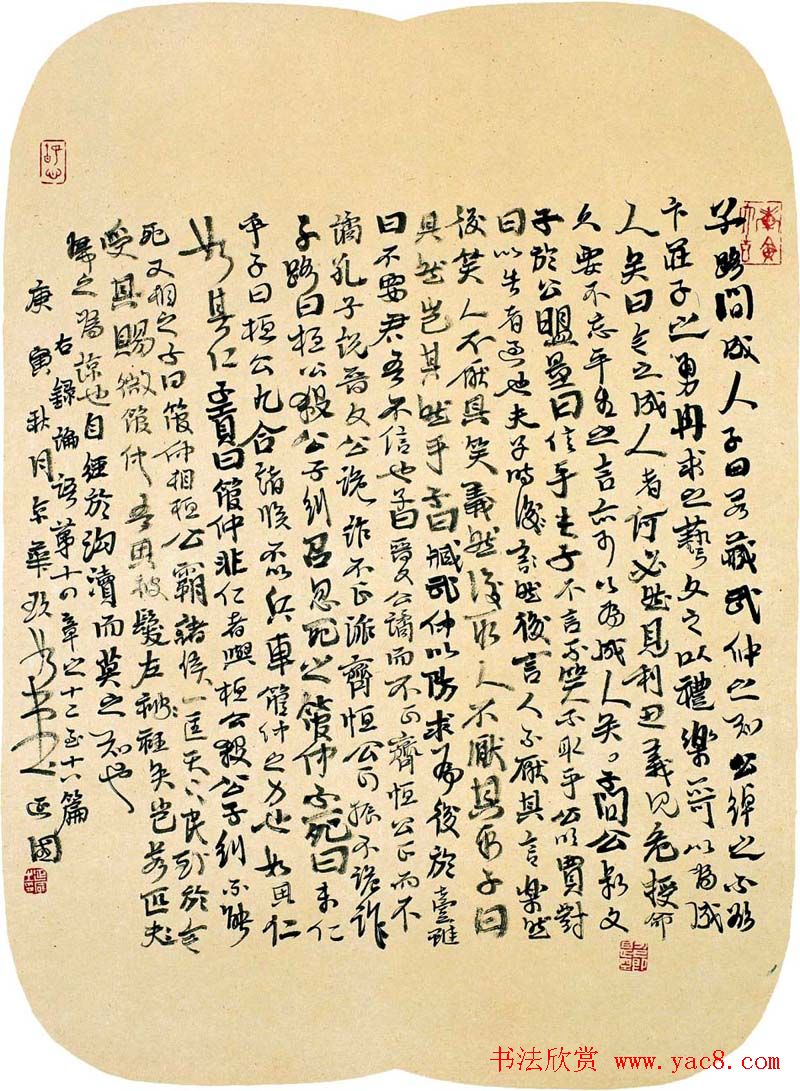 子路問成人子曰若臧武仲之知公綽之不欲
卞莊子之勇冉求之藝文之以禮樂亦可以為成
人矣曰今之成人者何必然見利思義見危授命
久要不忘平生之言亦可以為成人矣子問公叔文
子於公明賈曰信乎夫子不言不笑不取乎公明賈對
曰以告者過也夫子時後言然後言人不厭其言樂然
後笑人不厭其笑義然後取人不厭其取子曰
其然豈其然乎子曰臧武仲以防求為後於魯雖
曰不要君吾不信也子曰晉文公譎而不正齊桓公正而不
譎孔子說晉文公詭詐不正派齊恒公可
子路曰桓公殺公子糾召忽死之管仲不死曰未仁
乎子曰桓公九合諸侯不以兵車管仲之力也如其仁
如其仁子貢曰管仲非仁者與桓公殺公子糾不能
死又相之子曰管仲相桓公霸諸侯一匡天下民到於今
受其賜微管仲吾其被髮左衽矣豈若匹夫
婦之為諒也自經於溝瀆而莫之知也
右錄論語第十四章之十二至十八篇
庚寅秋月京華
書法欣赏 www.yac8.com